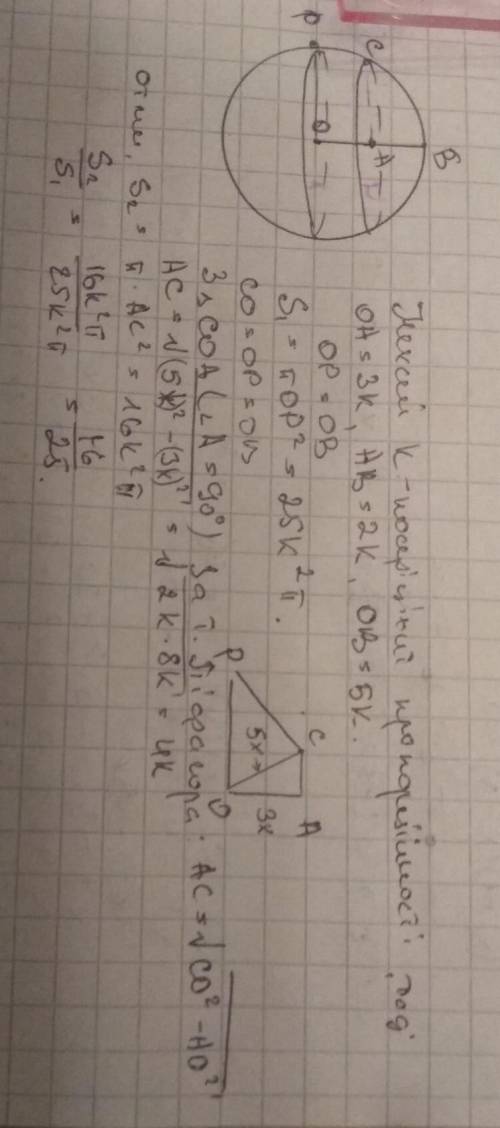 Нехай k-коефіцієнт пропорційності, тоді
OA = 3k, AB = 2k, OB = 5k.
OP = OB
S₁ = πOP² = 25k²π.
CO = OP = OB
З △COA (∠A = 90°) За т. Піфагора: AC = √(CO² - AO²)
AC = √((5k)² - (3k)²) = √(2k · 8k) = 4k
отже, S₂ = π · AC² = 16k²π
S₂/S₁ = 16k²π/25k²π = 16/25.
B
C
A
P
O
C
A
5x
3x
P
O